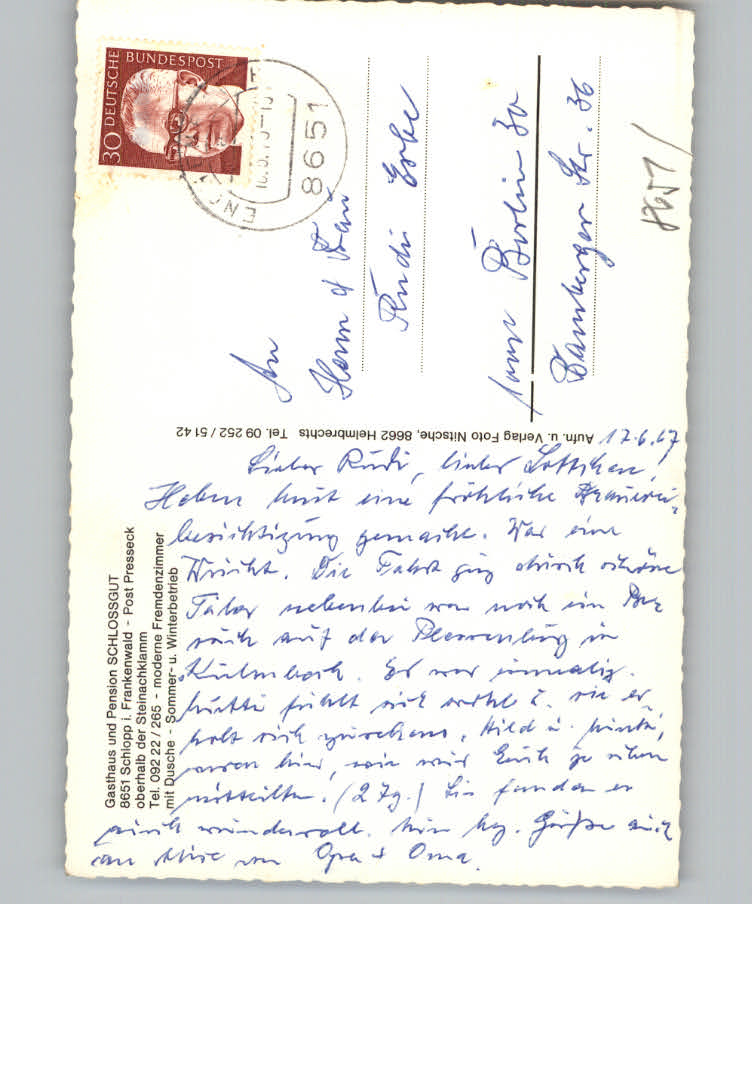 30 DEUTSCHE BUNDESPOST
8651
An
Herrn & Frau
Rudi Erbe
1000 Berlin 30
Bamberger Str. 36
8651
Aufn. u. Verlag Foto Nitsche, 8662 Helmbrechts Tel. 09 252 / 51 42
Gasthaus und Pension SCHLOSSGUT
8651 Schlopp i. Frankenwald - Post Presseck
oberhalb der Steinachklamm
Tel. 092 22 / 265 - moderne Fremdenzimmer
mit Dusche - Sommer- u. Winterbetrieb
Lieber Rudi, liebes Lottchen!
Haben heut eine fröhliche Brauerei-
besichtigung gemacht. War eine
Wucht. Die Fahrt ging durch schöne
Täler nebenbei war noch ein Be
such auf der Plassenburg in
Kulmbach. Es war einmalig.
Mutti fühlt sich wohl u. sie er
holt sich zusehens. Hild u.
waren hier, wie wir Euch ja schon
mitteilten. (2 Tg.) Sie fanden es
auch wundervoll. Nun hzg. Grüße auch
an von Opa & Oma.